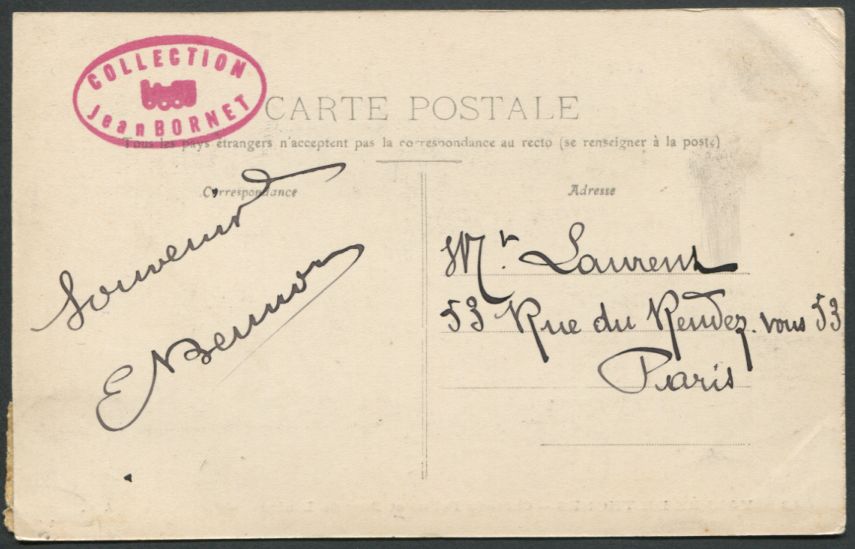 COLLECTION
Jean BORNET
CARTE POSTALE
Tous les pays étrangers n'acceptent pas la correspondance au recto (se renseigner à la poste)
Correspondance
Adresse
Souvenir
Mr Laurent
53 Rue du Rendez-vous 53
Paris